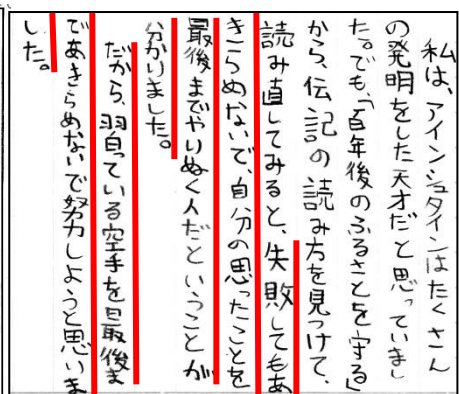 私は、アインシュタインはたくさん
の発明をした天才だと思っていまし
た。でも、「百年後のふるさとを守る」
から、伝記の読み方を見つけて、
読み直してみると、失敗してもあ
きらめないで、自分の思ったことを
最後までやりぬく人だということが
分かりました。
だから、習っている空手を最後ま
であきらめないで努力しようと思いま
した。